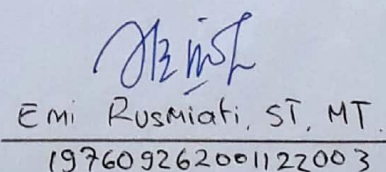 Emi Rusmiati, ST, MT.
197609262001122003